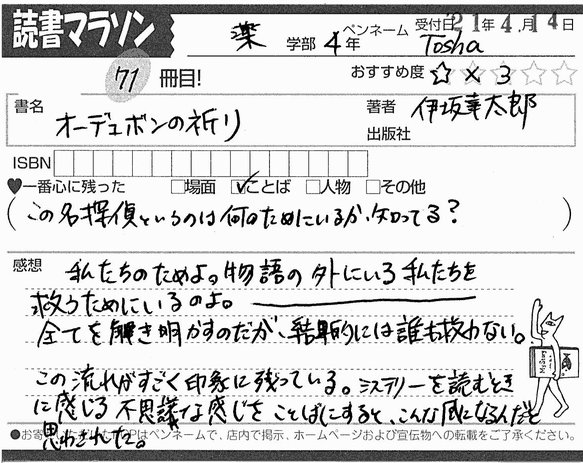 読書マラソン 薬 学部 4年 ペンネーム Tosha 受付日 '21年4月14日
71 冊目! おすすめ度 ☆×3 ☆☆
書名 オーデュボンの祈り 著者 伊坂幸太郎
出版社
ISBN
♥一番心に残った □場面 ☑ことば □人物 □その他
(この名探偵というのは何のためにいるか、知ってる?)
感想 私たちのためよ。物語の外にいる私たちを
救うためにいるのよ。
全てを解き明かすのだが、結果的には誰も救わない。
この流れがすごく印象に残っている。ミステリーを読むとき
に感じる不思議な感じをことばにすると、こんな風になるんだと
思わされた。
●お寄せいただいたPOPはペンネームで、店内で掲示、ホームページおよび宣伝物への転載をご了承ください。